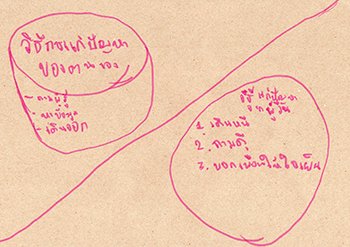 วิธีการแก้ปัญหา
ของตนเอง
- ถามผู้รู้
- หาข้อมูล
- เดินออก
วิธีแก้ปัญหา
จากผู้อื่น
1. เดินหนี
2. ถามดี
3. บอกเพื่อนให้ใจเย็น